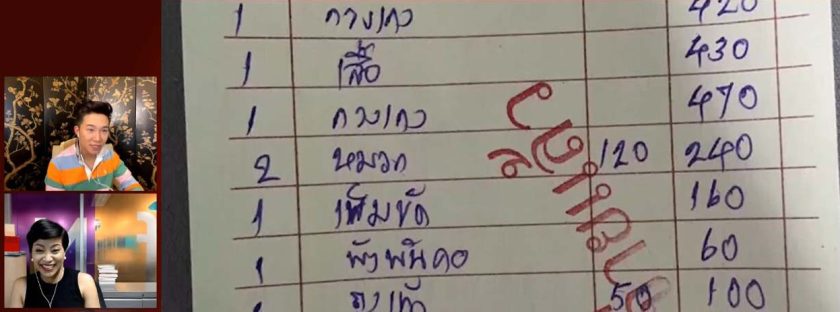 1 กางเกง 420
1 เสื้อ 430
1 กางเกง 470
2 หมวก 120 240
1 เข็มขัด 160
1 ผ้าพันคอ 60
1 50 100